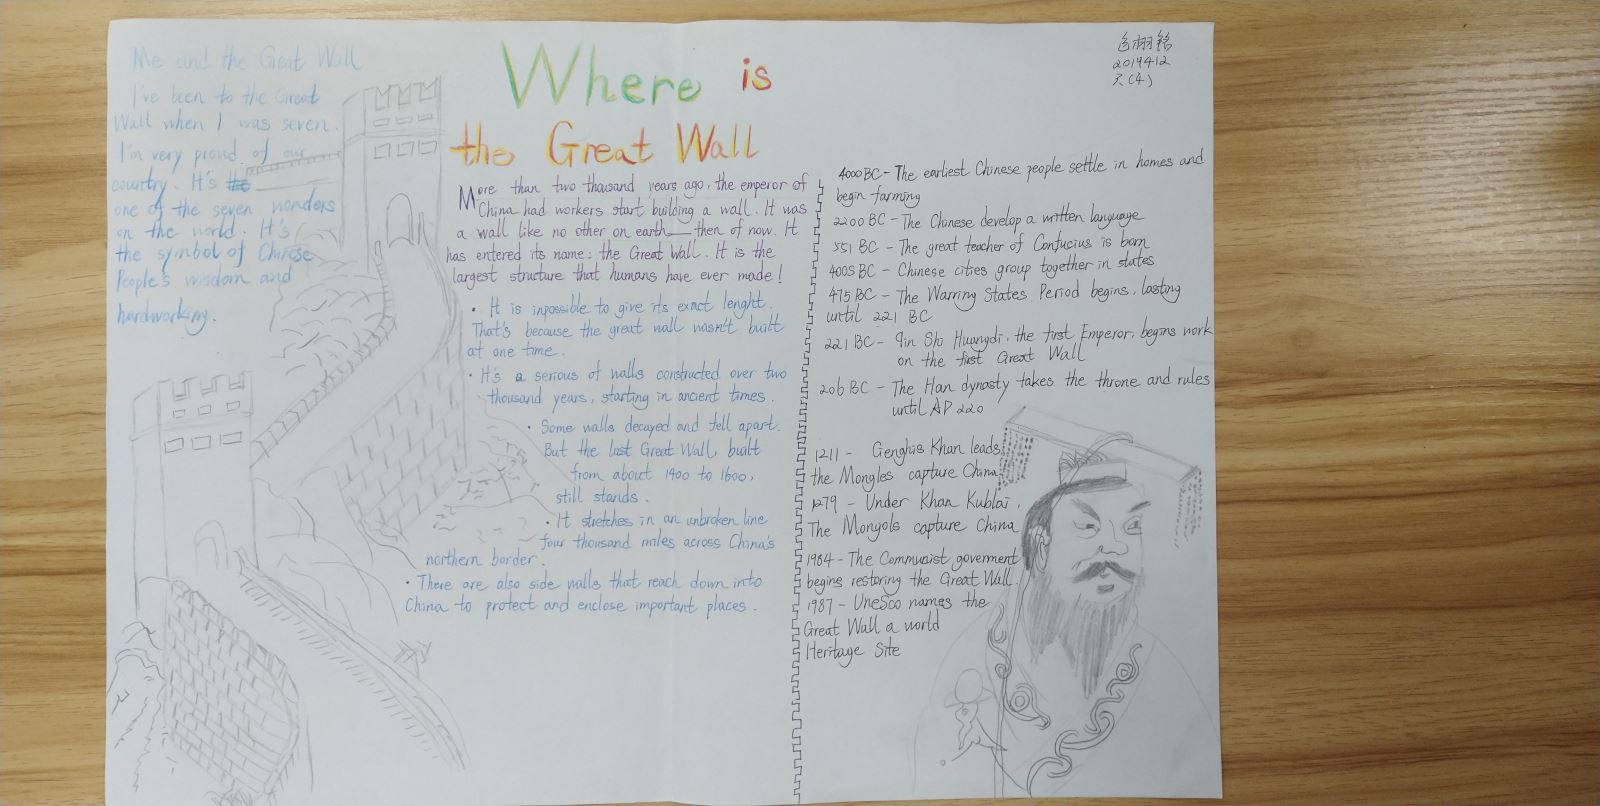 Me and the Great Wall
I've been to the Great
Wall when I was seven.
I'm very proud of our
country. It's the
one of the seven wonders
on the world. It's
the symbol of Chinese
People's wisdom and
hardworking.
Where is
the Great Wall
More than two thousand years ago, the emperor of
China had workers start building a wall. It was
a wall like no other on earth—then of now. It
has entered its name: the Great Wall. It is the
largest structure that humans have ever made!
· It is inpossible to give its exact lenght.
That's because the great wall wasn't built
at one time.
· It's a serious of walls constructed over two
thousand years, starting in ancient times.
· Some walls decayed and fell apart.
But the last Great Wall, built
from about 1400 to 1600,
still stands.
· It stretches in an unbroken line
four thousand miles across China's
northern border.
· There are also side walls that reach down into
China to protect and enclose important places.
2019412
(4)
4000 BC - The earliest Chinese people settle in homes and
begin farming
2200 BC - The Chinese develop a written language
551 BC - The great teacher of Confucius is born
400s BC - Chinese cities group together in states
475 BC - The Warring States Period begins, lasting
until 221 BC
221 BC - Qin Shi Huangdi, the first Emperor, begins work
on the first Great Wall
206 BC - The Han dynasty takes the throne and rules
until AD 220
1211 - Genghis Khan leads
the Mongles capture China
1279 - Under Khan Kublai,
The Mongols capture China
1984 - The Communist goverment
begins restoring the Great Wall.
1987 - UneSco names the
Great Wall a world
Heritage Site